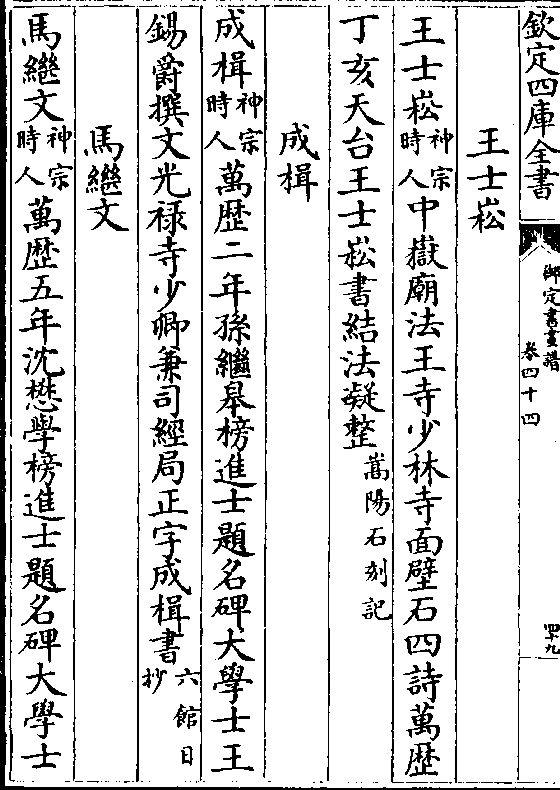 欽定四庫全書
御定書畫譜
卷四十四
四十九
王士崧
王士崧神宗時人中嶽廟法王寺少林寺面壁石四詩萬歴
丁亥天台王士崧書結法凝整嵩陽石刻記
成楫
成楫神宗時人萬歴二年孫繼臯榜進士題名碑大學士王
錫爵撰文光禄寺少卿兼司經局正字成楫書六館日抄
馬繼文
馬繼文神宗時人萬歴五年沈懋學榜進士題名碑大學士